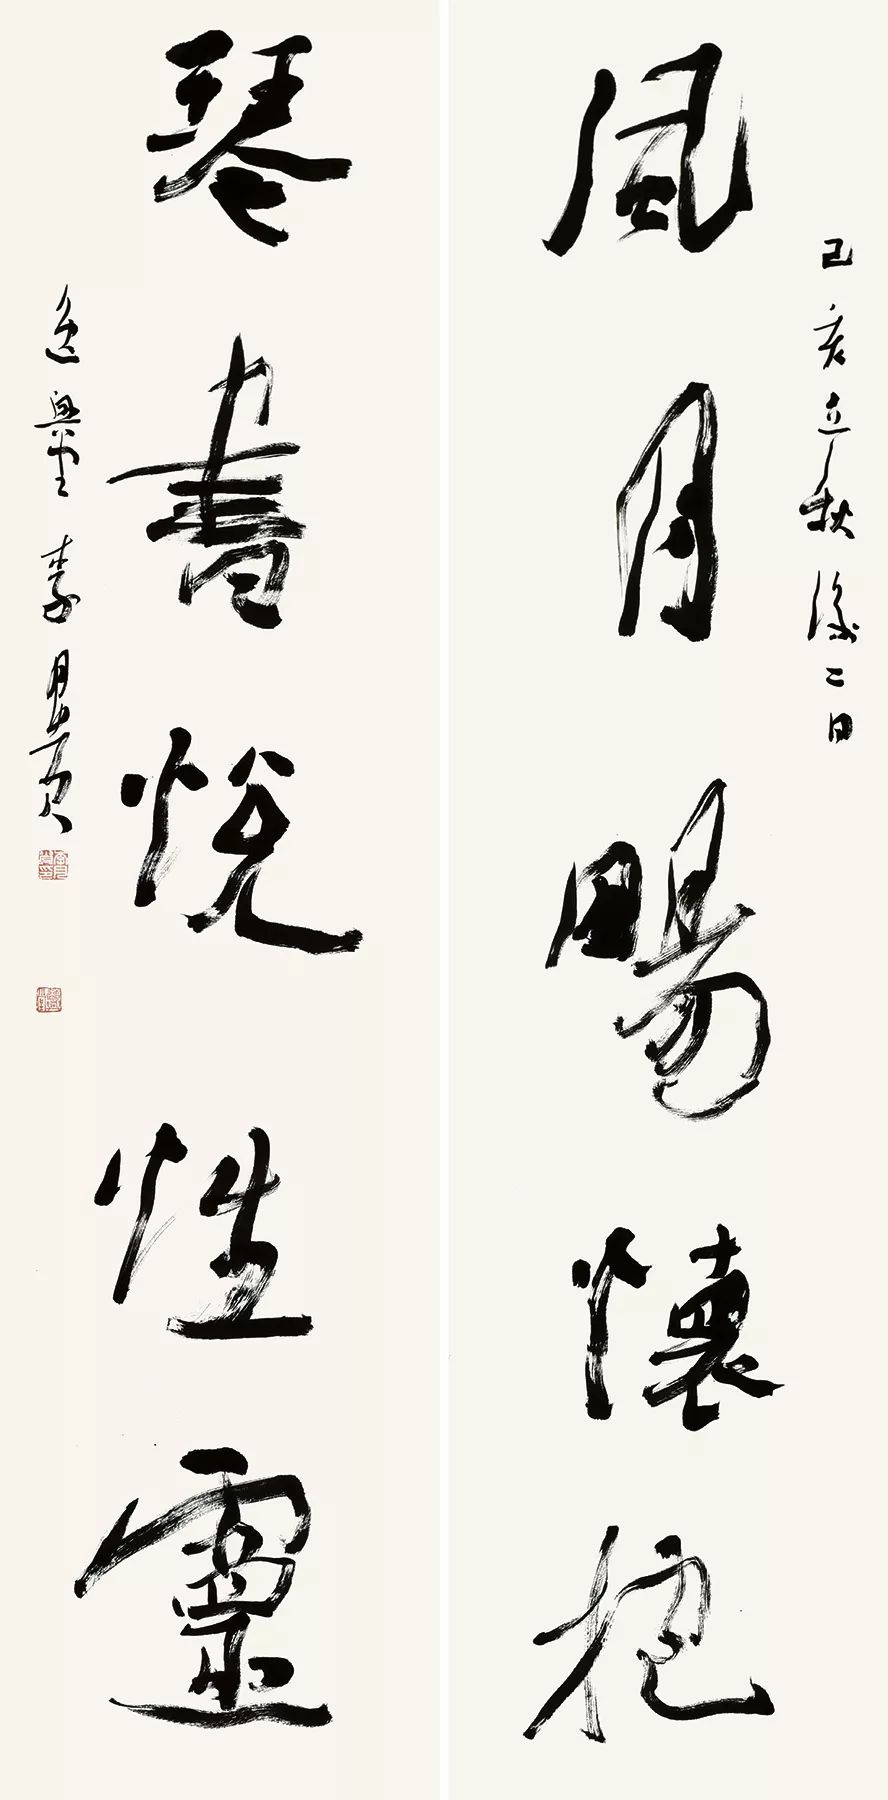 己亥立秋後二日
風月暢懷抱
琴書悅性靈
逸興堂李